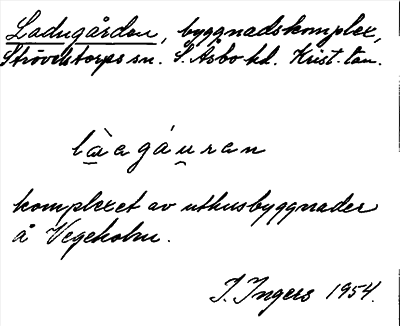 Ladugården, byggnadskomplex,
Strövelstorps sn. S. Åsbo hd. Krist. län.
làagáuran
komplexet av uthusbyggnader
å Vegeholm.
I. Ingers 1954.